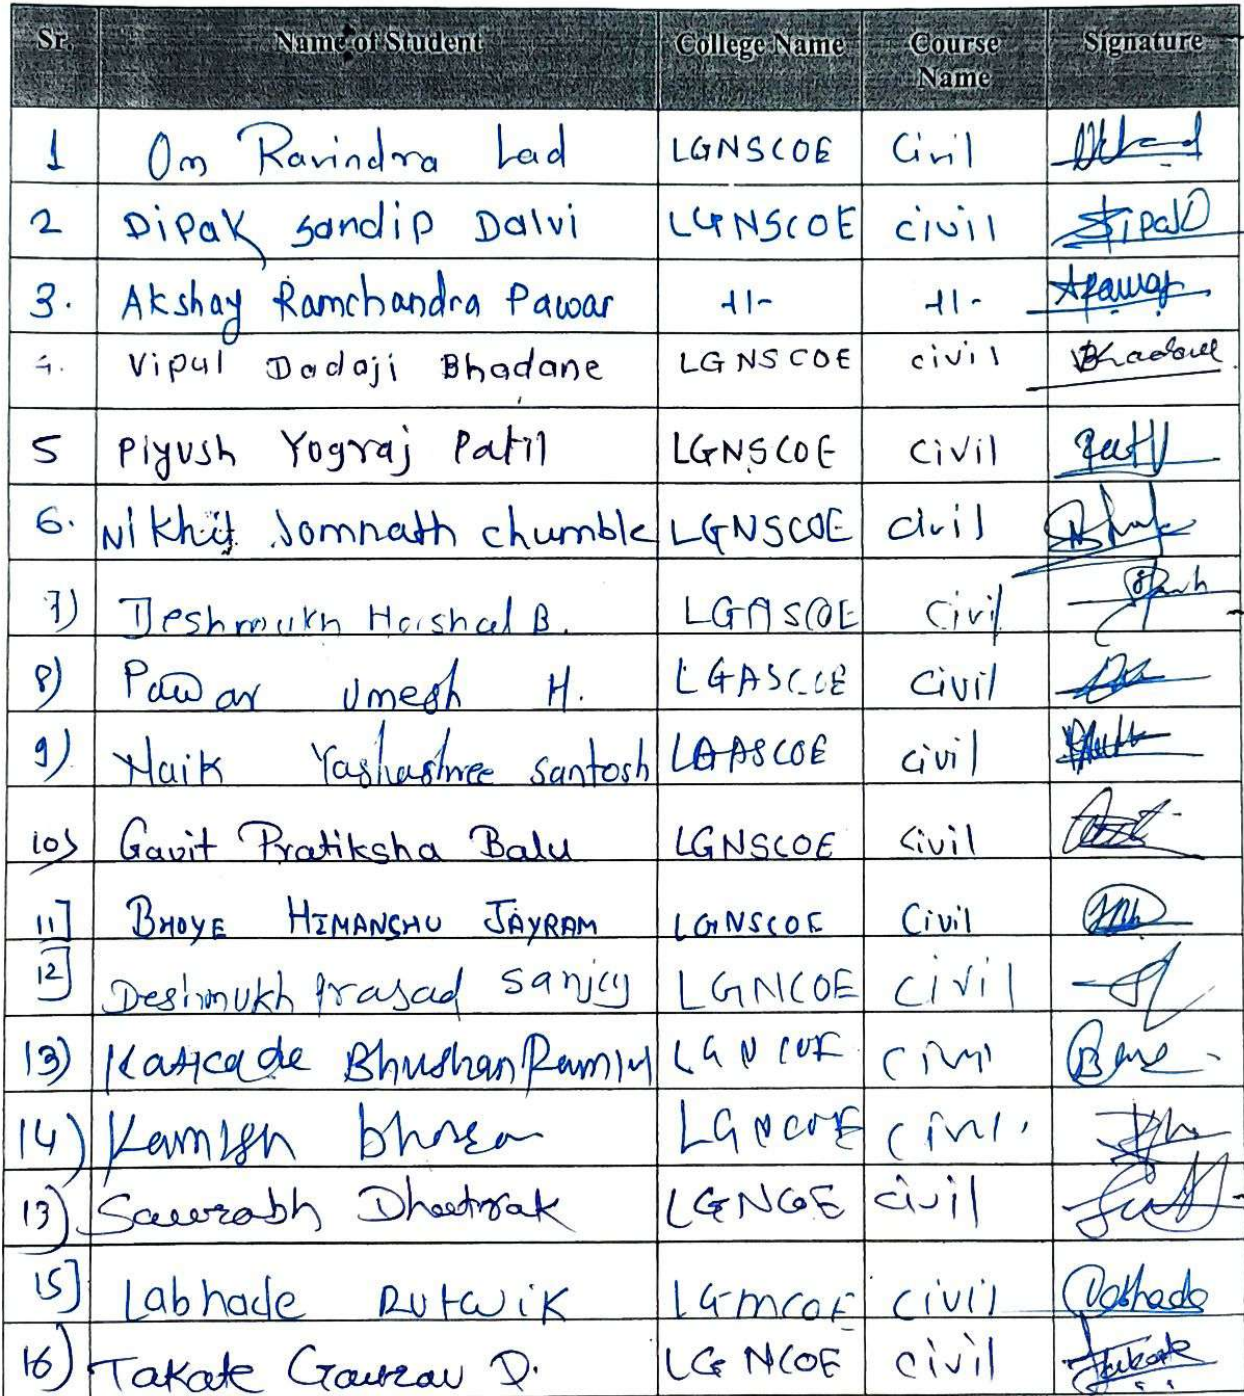 Sr. Name of Student College Name Course Name Signature
1 Om Ravindra Lad LGNSCOE Civil
2 Dipak Sandip Dalvi LGNSCOE civil Dipak
3. Akshay Ramchandra Pawar -11- -11- APawar
4. Vipul Dadaji Bhadane LGNSCOE civil Bhadane
5 Piyush Yograj Patil LGNSCOE Civil Patil
6. Nikhil Somnath chumble LGNSCOE civil
7) Deshmukh Harshal B. LGNSCOE Civil
8) Pawar Umesh H. LGASCOE Civil
9) Naik Yashashree Santosh LGASCOE civil
10) Gavit Pratiksha Balu LGNSCOE Civil
11] BHOYE HIMANSHU JAYRAM LGNSCOE Civil
12] Deshmukh Prasad Sanjay LGNCOE Civil
13) Bhushan LGNCOE Civil
14) LGNCOE Civil.
13) Saurabh Dhatrak LGNCOE civil
15] Labhade Rutwik LGMCOE Civil
16) Takate Gaurav D. LGNCOE civil Takate